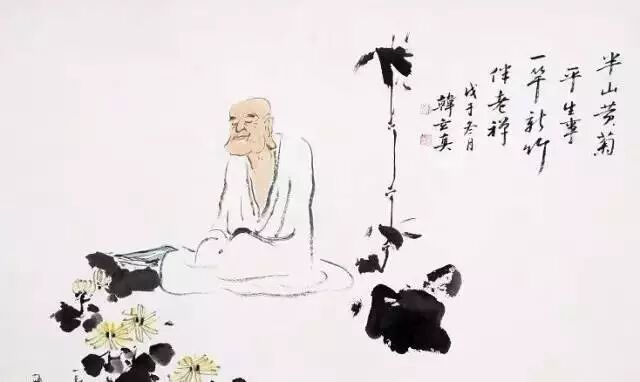 半山黄菊
平生事
一竿新竹
伴老禅
戊子冬月
韓玄真